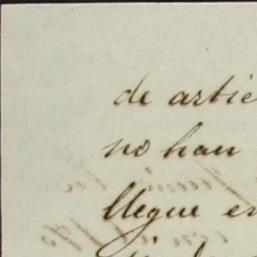 de artie
no han
llegue en